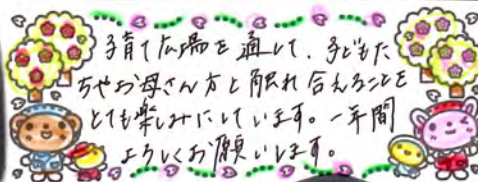 子育て広場を通して、子どもた
ちやお母さん方と触れ合えることを
とても楽しみにしています。一年間
よろしくお願いします。